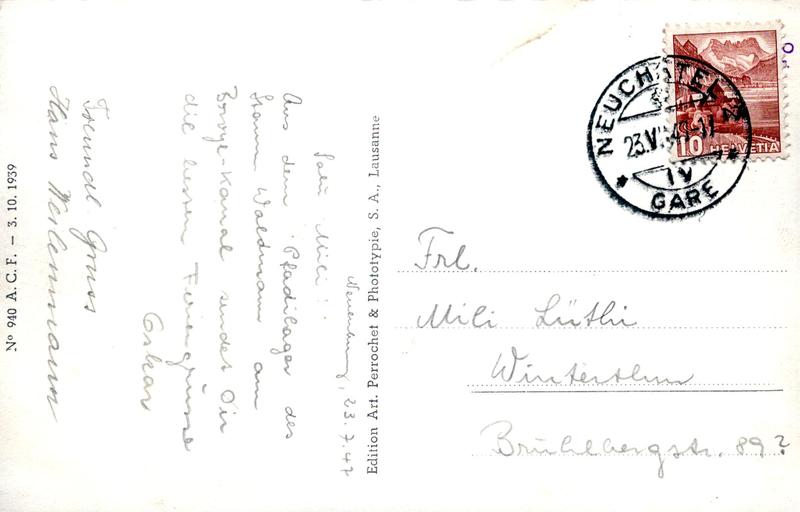 Neuenburg, 23.7.47
Salü Mili!
Aus dem Pfadilager des
Stamm Waldmann am
Broye-Kanal sendet Dir
die besten Feriengrüsse
Oskar
Freundl. Gruss
Hans
Edition Art. Perrochet & Phototypie, S. A., Lausanne
Nº 940 A. C. F. — 3. 10. 1939
NEUCHATEL 2
23.VII
IV
GARE
10 HELVETIA
Frl.
Mili Lüthi
Winterthur
Brühlbergstr. 89?